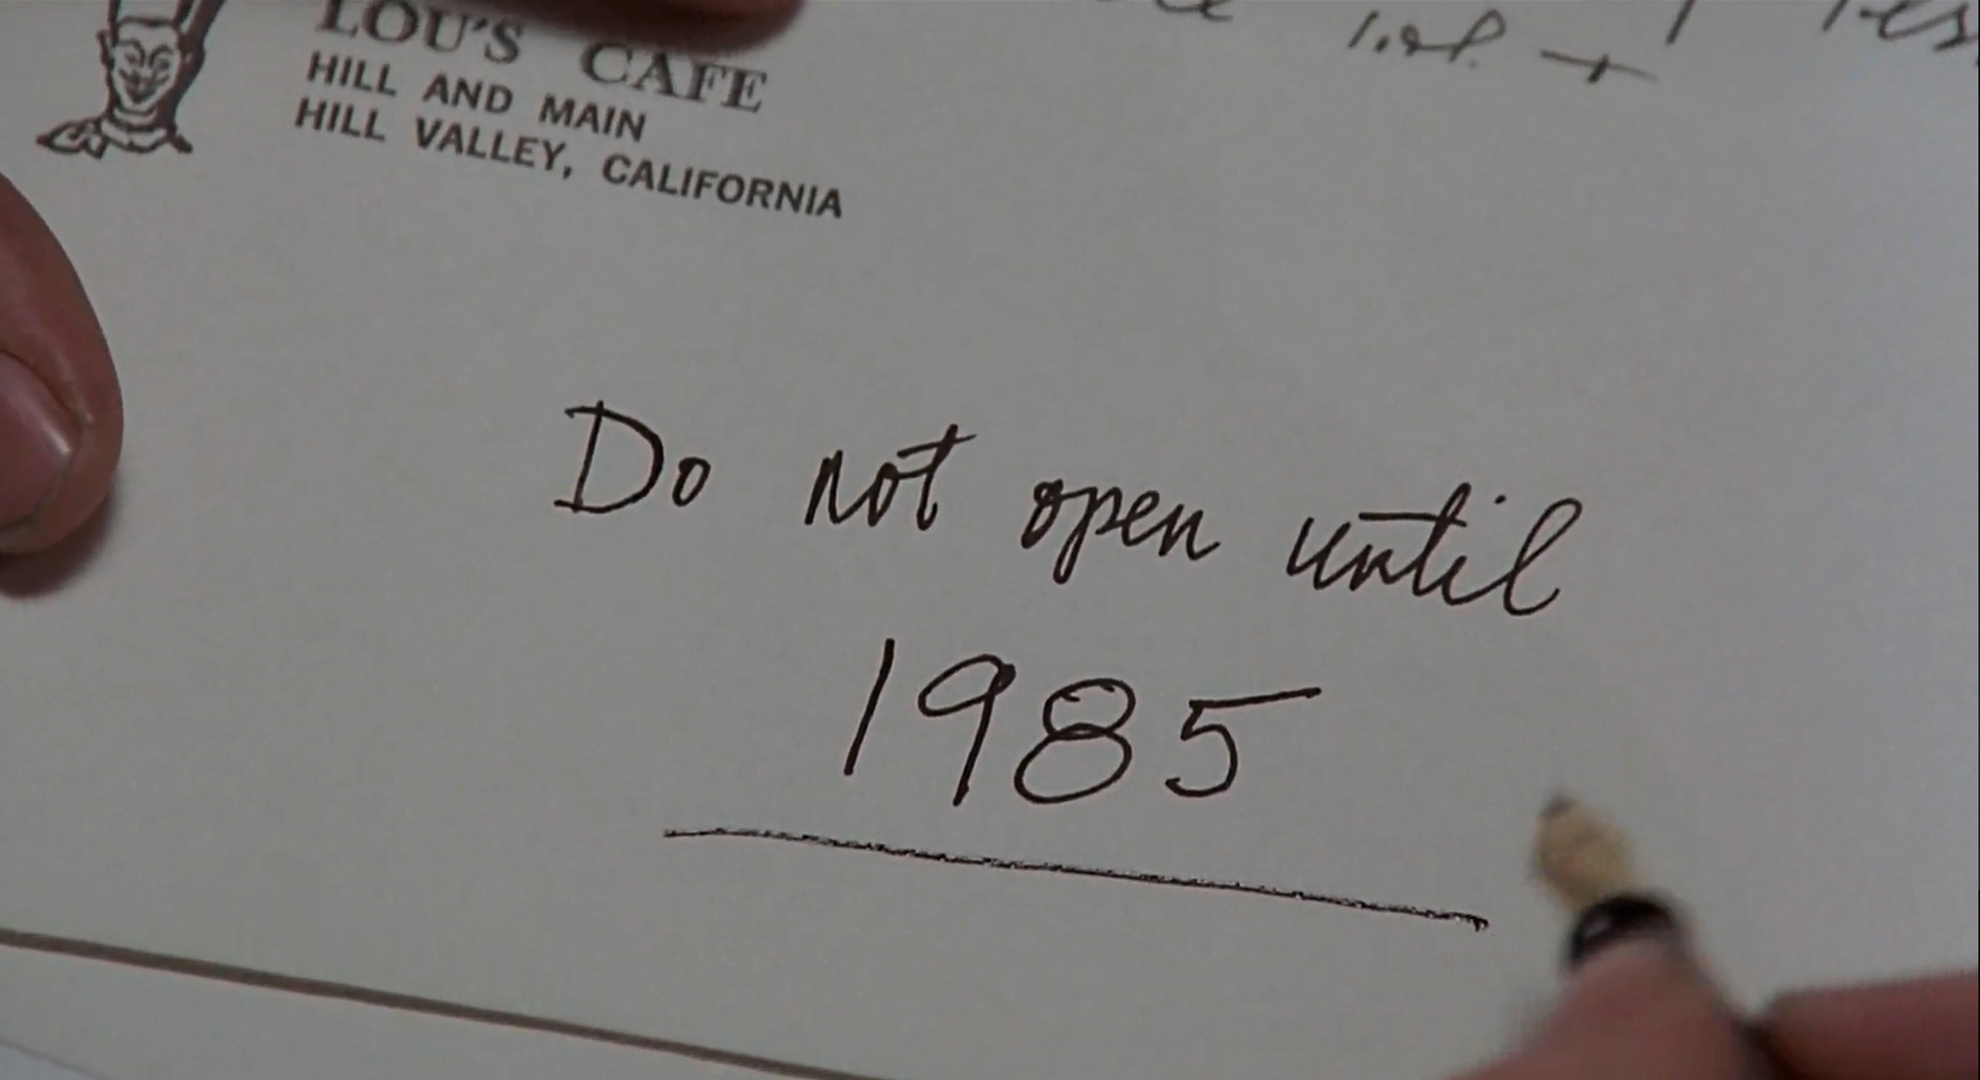 LOU'S CAFE
HILL AND MAIN
HILL VALLEY, CALIFORNIA
Do not open until
1985